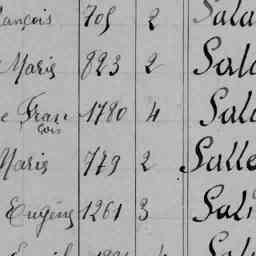 ançois 705 2 Sala
Marie 823 2 Sal
e Fran 1780 4 Sal
çois
Marie 779 2 Salle
Eugène 1261 3 Sali